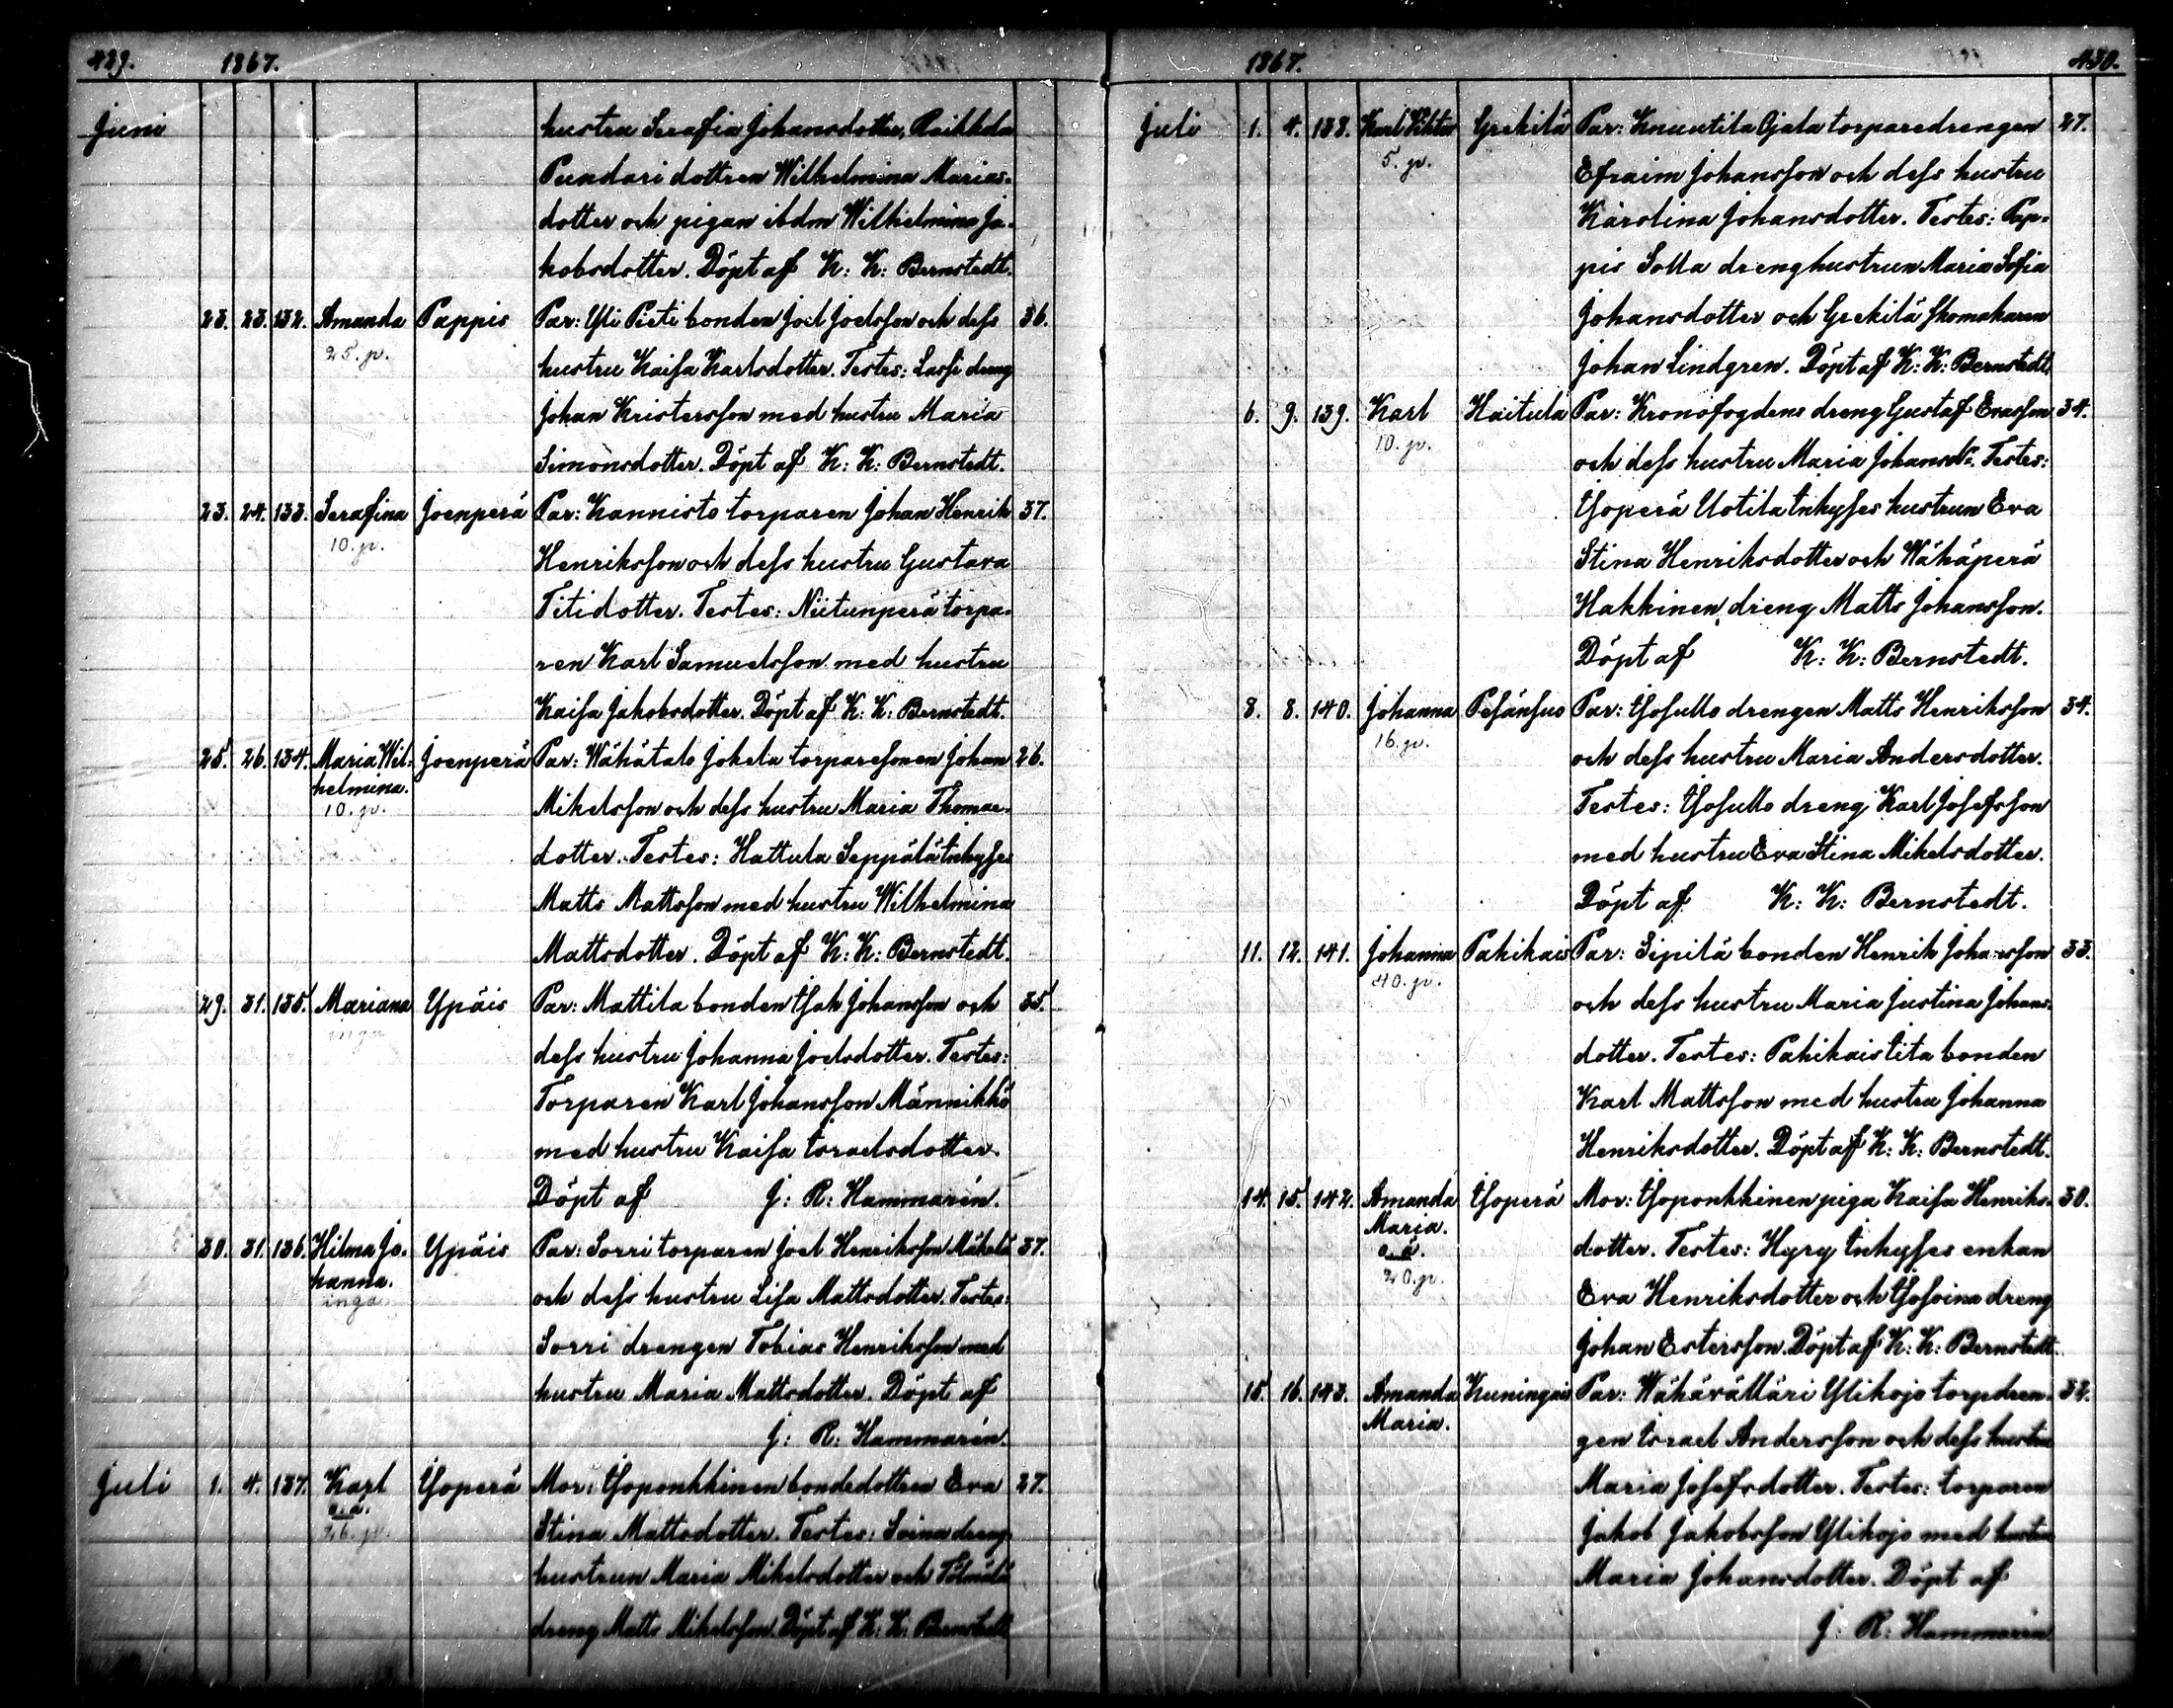 429. 1867.
Juni hustru Serafia Johansdotter, Raikkola
Pundari dottren Wilhelmina Marias-
dotter och pigan ibdm Wilhelmina Ja-
kobsdotter. Döpt af K: K: Bernstedt.
23. 23. 132. Amanda Pappis Par: Yli Pieti bonden Joel Joelsson och dess 36.
25. p. hustru Kaisa Karlsdotter. Testes: Lassi dreng
Johan Kristersson med hustru Maria
Simonsdotter. Döpt af K: K: Bernstedt.
23. 24. 133. Serafina Joenperä Par: Kannisto torparen Johan Henrik 37.
10. p. Henriksson och dess hustru Gustava
Titidotter. Testes: Niitunperä torpa-
ren Karl Samuelsson med hustru
Kaisa Jakobsdotter. Döpt af K: K: Bernstedt.
25. 26. 134. Maria Wil- Joenperä Par: Wähätalo Jokela torparesonen Johan 26.
helmina. Mikelsson och dess hustru Maria Thomas-
10. p. dotter. Testes: Hattula Seppälä Inhyses
Matts Mattsson med hustru Wilhelmina
Mattsdotter. Döpt af K: K: Bernstedt.
29. 31. 135. Mariana Ypäis Par: Mattila bonden Isak Johansson och 35.
inga dess hustru Johanna Joelsdotter. Testes:
Torparen Karl Johansson Männikkö
med hustru Kaisa Israelsdotter.
Döpt af J: R: Hammarén.
30. 31. 136. Hilma Jo- Ypäis Par: Sorri torparen Joel Henriksson Mäkelä 37.
hanna. och dess hustru Lisa Mattsdotter. Testes:
inga Sorri drengen Tobias Henriksson med
hustru Maria Mattsdotter. Döpt af
J: R: Hammarén.
Juli 1. 4. 137. Karl Isoperä Mor: Isoponkkinen bondedottren Eva 27.
o.ä. Stina Mattsdotter. Testes: Soina dreng-
26. p. hustrun Maria Mikelsdotter och
dreng Matts Mikelsson. Döpt af K: K: Bernstedt
1867. 430.
Juli 1. 4. 138. Karl Viktor Grekilä Par: Knuutila Ojala torparedrengen 27.
5. p. Efraim Johansson och dess hustru
Karolina Johansdotter. Testes: Pap-
pis Solla drenghustrun Maria Sofia
Johansdotter och Grekilä Skomakaren
Johan Lindgren. Döpt af K: K: Bernstedt.
6. 9. 139. Karl Haitula Par: Kronofogdens dreng Gustaf Evasson 34.
10. p. och dess hustru Maria Johansdr. Testes:
Isoperä Uotila Inhyses hustrun Eva
Stina Henriksdotter och Wähäperä
Hakkinen, dreng Matts Johansson.
Döpt af K: K: Bernstedt.
8. 8. 140. Johanna Pesänsuo Par: Isosutto drengen Matts Henriksson 34.
16. p. och dess hustru Maria Andersdotter.
Testes: Isosutto dreng Karl Josefsson
med hustru Eva Stina Mikelsdotter.
Döpt af K: K: Bernstedt.
11. 12. 141. Johanna Pahikais Par: Sipilä bonden Henrik Johansson 33.
40. p. och dess hustru Maria Justina Johans-
dotter. Testes: Pahikais Iita bonden
Karl Mattsson med hustru Johanna
Henriksdotter. Döpt af K: K: Bernstedt.
14. 15. 142. Amanda Isoperä Mor: Isoponkkinen piga Kaisa Henriks- 30.
Maria. dotter. Testes: Hyry Inhyses enkan
o.ä. Eva Henriksdotter och Isosoina dreng
20. p. Johan Estersson. Döpt af K: K: Bernstedt.
15. 16. 143. Amanda Kuningais Par: Wähävälläri Ylikojo torpdren- 32.
Maria. gen Israel Andersson och dess hustru
Maria Josefsdotter. Testes: torparen
Jakob Jakobsson Ylikojo med hustru
Maria Johansdotter. Döpt af
J: R: Hammarén